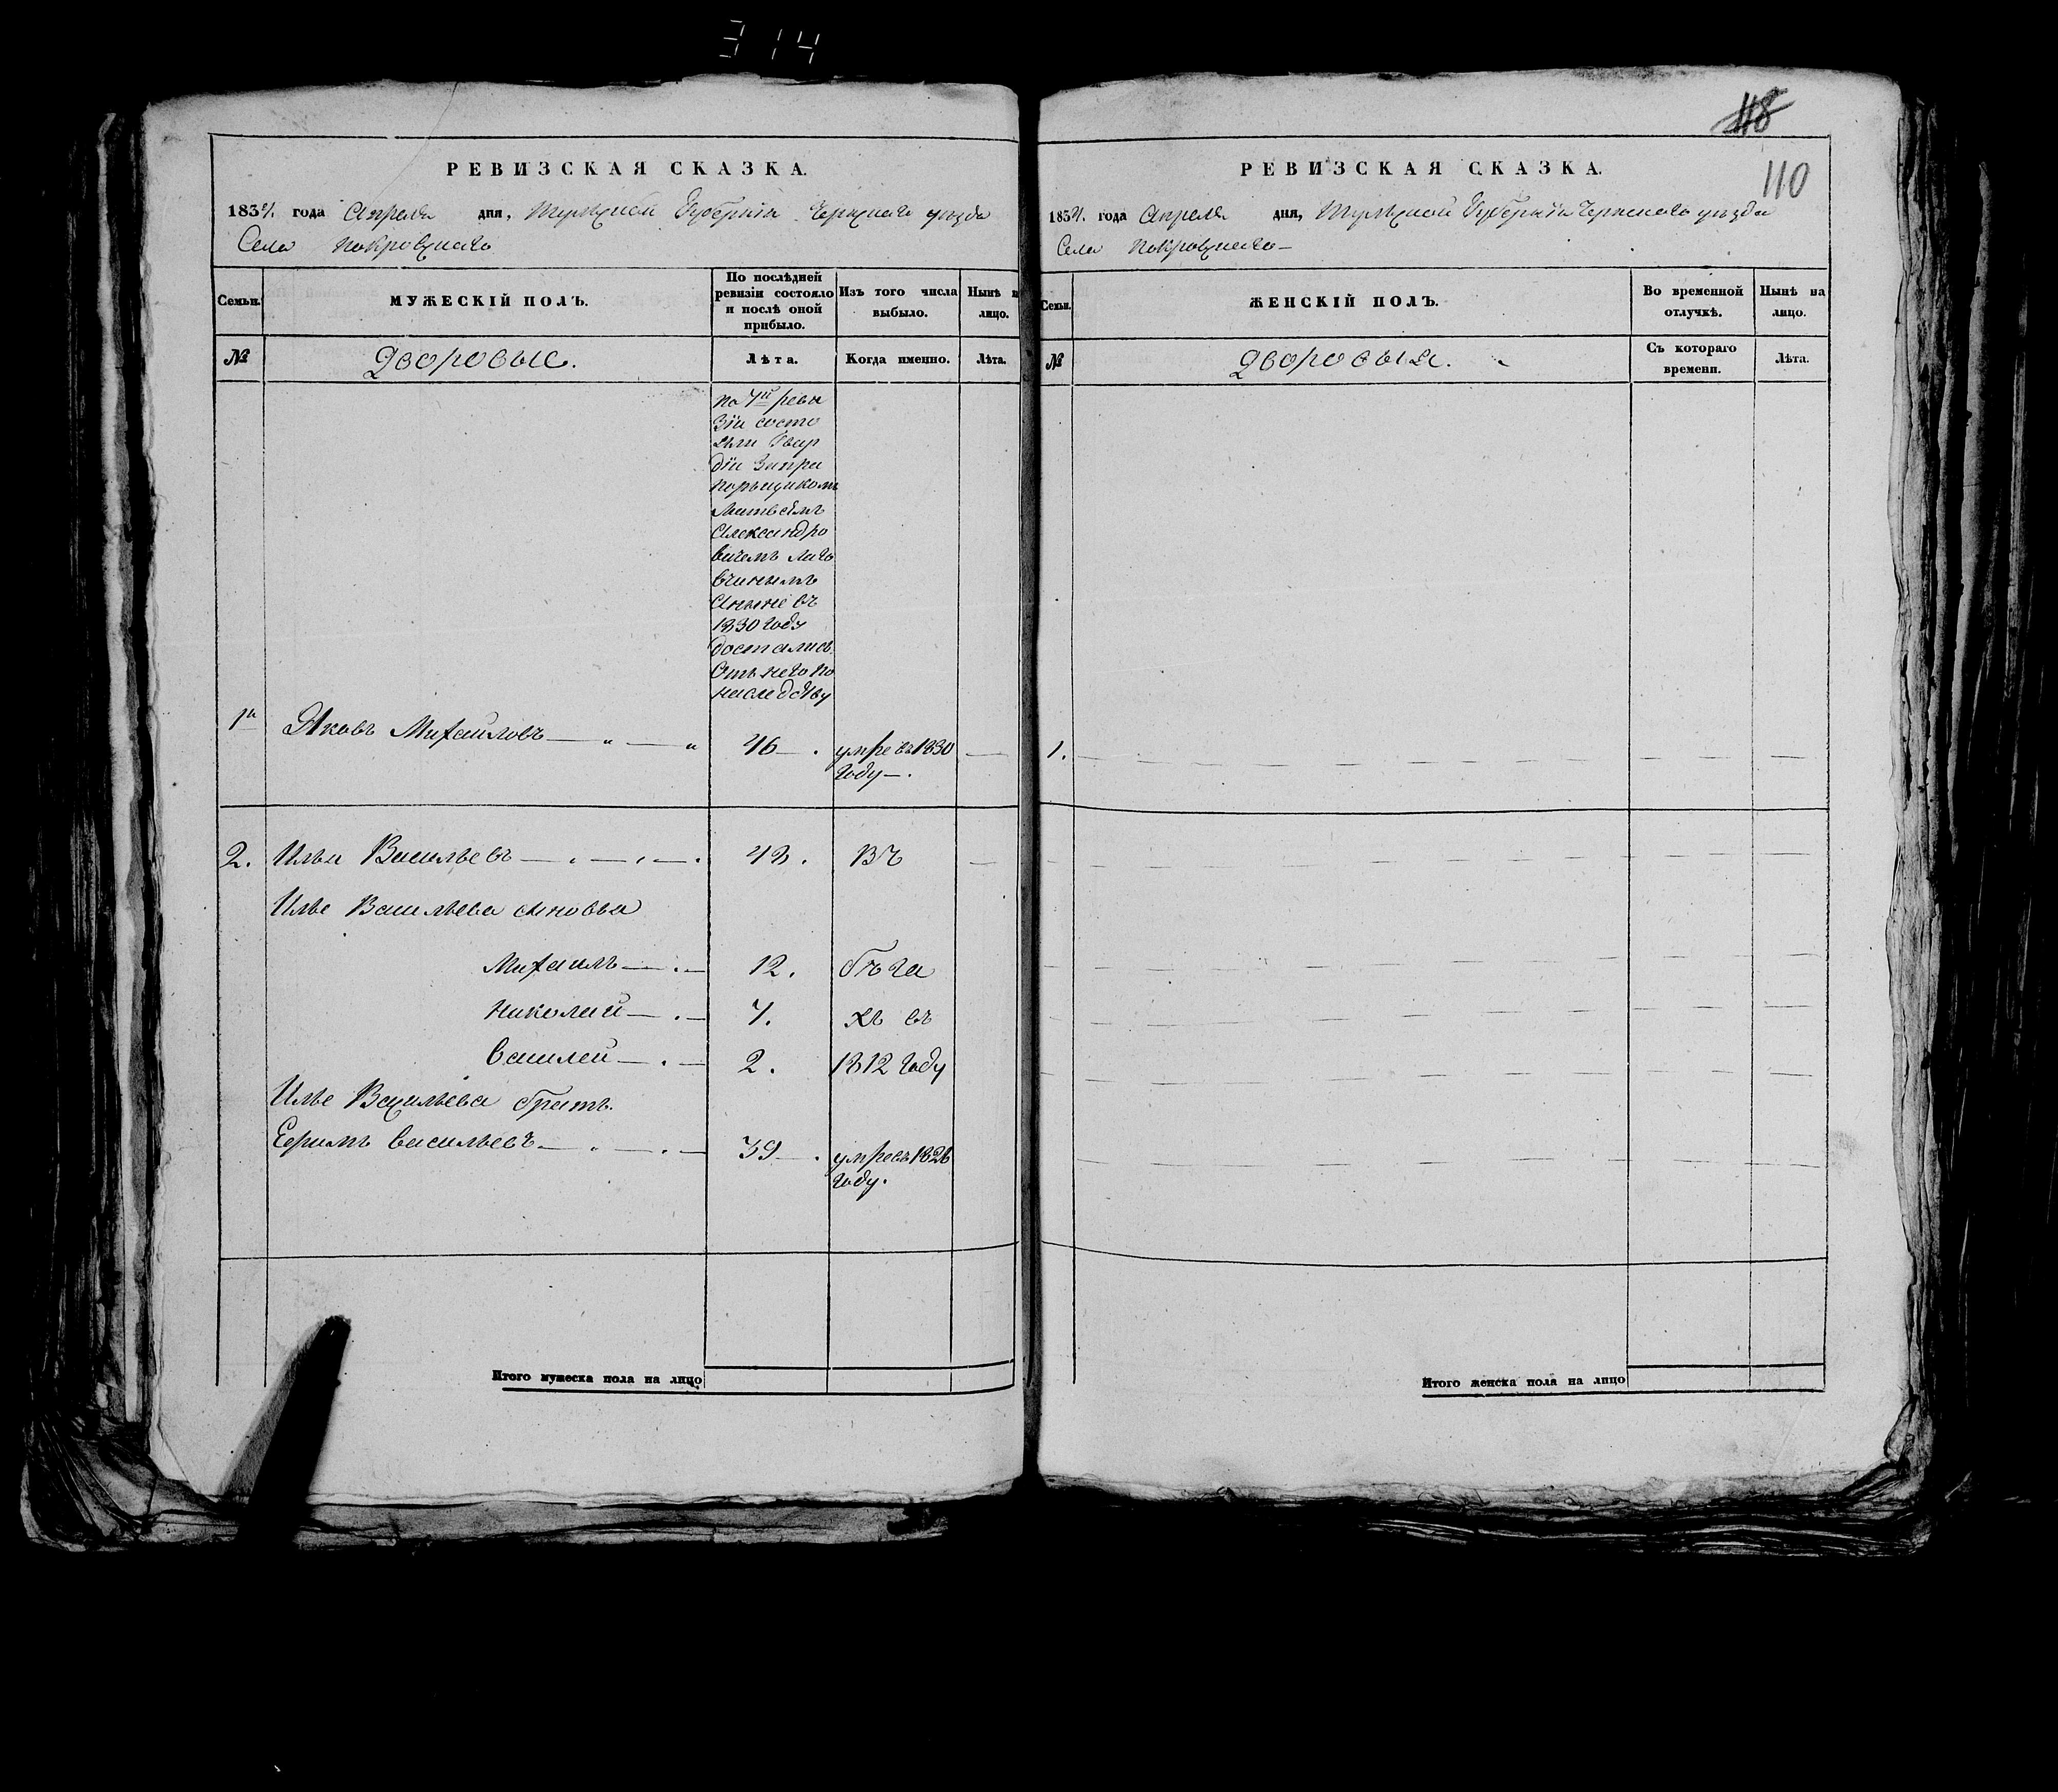 314
118
110
РЕВИЗСКАЯ СКАЗКА.
1834. года Апреля дня, Тульской Губернiи Чернскаго уезда
Села Покровскаго
Семьи.
МУЖЕСКIЙ ПОЛЪ.
По послѣдней ревизiи состояло и послѣ оной прибыло.
Изъ того числа выбыло.
Нынѣ н лицо.
№
Дворовые.
Лѣта.
Когда именно.
Лѣта.
по 7й ревы
зiи состо
яли Гвар
дiи
порьщикомъ
Матвеемъ
Александро
вичемъ
Аныне въ
1830 году
достались
Отъ него по
наследству
1й Яковъ Михайловъ 46 умре въ 1830
году
2. Илья Васильевъ 43. ВЪ
Илье Васильева сыновья
Михаилъ 12. бѣга
Николай 7. хъ въ
Василей 2. 1812 году
Илье Васильева братъ.
Ефимъ Васильевъ 39 умре въ 1826
году.
Итого мужеска пола на лицо
РЕВИЗСКАЯ СКАЗКА.
1834. года Апреля дня, Тульской Губернiи Чернскаго уезда
Села Покровскаго
Семьи.
ЖЕНСКIЙ ПОЛЪ.
Во временной отлучкѣ.
Нынѣ на лицо.
№
Дворовыя.
Съ котораго времени.
Лѣта.
1.
Итого женска пола на лицо